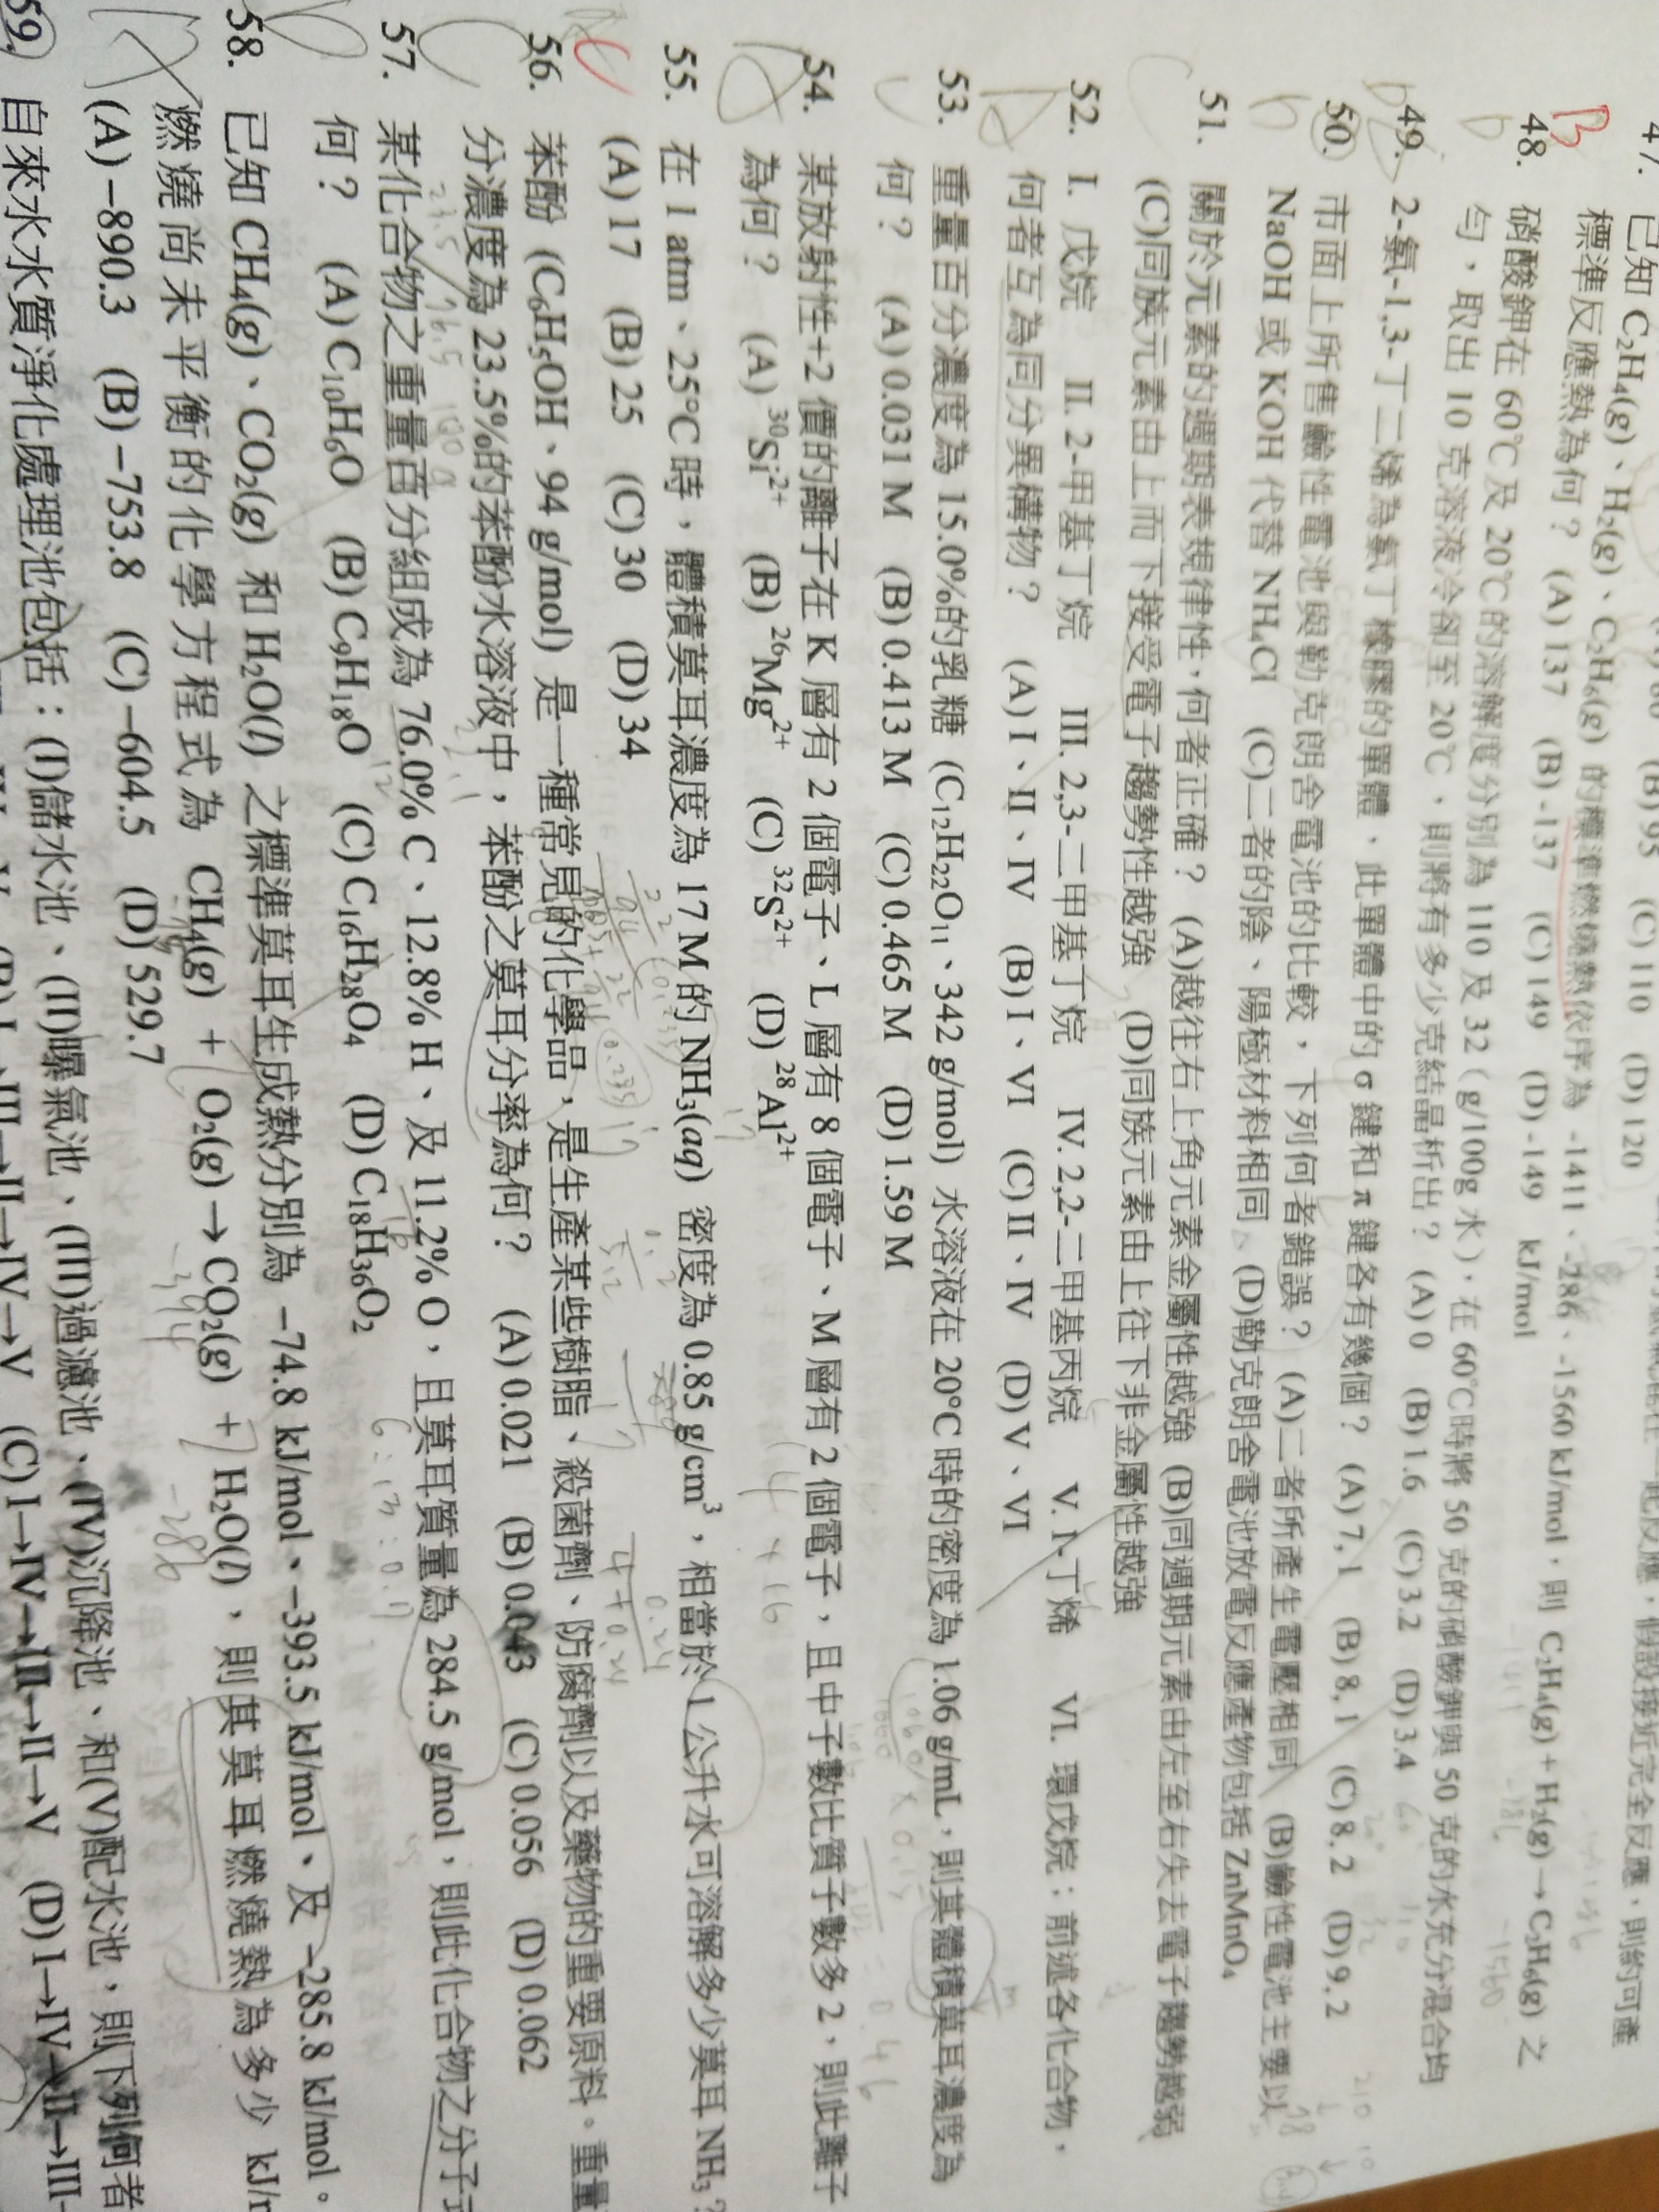 (B) 95 (C) 110 (D) 120
47. 已知 C₂H₄(g)、H₂(g)、C₂H₆(g) 的標準燃燒熱依序為 -1411、-286、-1560 kJ/mol,則 C₂H₄(g) + H₂(g) → C₂H₆(g) 之
標準反應熱為何? (A) 137 (B) -137 (C) 149 (D) -149 kJ/mol
48. 硝酸鉀在 60℃及 20℃的溶解度分別為 110 及 32(g/100g 水),在 60℃時將 50 克的硝酸鉀與 50 克的水充分混合均
勻,取出 10 克溶液冷卻至 20℃,則將有多少克結晶析出? (A) 0 (B) 1.6 (C) 3.2 (D) 3.4
49. 2-氯-1,3-丁二烯為氯丁橡膠的單體,此單體中的 σ 鍵和 π 鍵各有幾個? (A) 7, 1 (B) 8, 1 (C) 8, 2 (D) 9, 2
50. 市面上所售鹼性電池與勒克朗舍電池的比較,下列何者錯誤? (A)二者所產生電壓相同 (B)鹼性電池主要以
NaOH 或 KOH 代替 NH₄Cl (C)二者的陰、陽極材料相同 (D)勒克朗舍電池放電反應產物包括 ZnMnO₄
51. 關於元素的週期表規律性,何者正確? (A)越往右上角元素金屬性越強 (B)同週期元素由左至右失去電子趨勢越弱
(C)同族元素由上而下接受電子趨勢性越強 (D)同族元素由上往下非金屬性越強
52. I. 戊烷 II. 2-甲基丁烷 III. 2,3-二甲基丁烷 IV. 2,2-二甲基丙烷 V. 1-丁烯 VI. 環戊烷:前述各化合物,
何者互為同分異構物? (A) I、II、IV (B) I、VI (C) II、IV (D) V、VI
53. 重量百分濃度為 15.0%的乳糖 (C₁₂H₂₂O₁₁、342 g/mol) 水溶液在 20°C 時的密度為 1.06 g/mL,則其體積莫耳濃度為
何? (A) 0.031 M (B) 0.413 M (C) 0.465 M (D) 1.59 M
54. 某放射性+2 價的離子在 K 層有 2 個電子、L 層有 8 個電子、M 層有 2 個電子,且中子數比質子數多 2,則此離子
為何? (A) ³⁰Si²⁺ (B) ²⁶Mg²⁺ (C) ³²S²⁺ (D) ²⁸Al²⁺
55. 在 1 atm、25°C 時,體積莫耳濃度為 17 M 的 NH₃(aq) 密度為 0.85 g/cm³,相當於 1 公升水可溶解多少莫耳 NH₃?
(A) 17 (B) 25 (C) 30 (D) 34
56. 苯酚 (C₆H₅OH、94 g/mol) 是一種常見的化學品,是生產某些樹脂、殺菌劑、防腐劑以及藥物的重要原料。重量
分濃度為 23.5%的苯酚水溶液中,苯酚之莫耳分率為何? (A) 0.021 (B) 0.043 (C) 0.056 (D) 0.062
57. 某化合物之重量百分組成為 76.0% C、12.8% H、及 11.2% O,且莫耳質量為 284.5 g/mol,則此化合物之分子
何? (A) C₁₀H₆O (B) C₉H₁₈O (C) C₁₆H₂₈O₄ (D) C₁₈H₃₆O₂
58. 已知 CH₄(g)、CO₂(g) 和 H₂O(l) 之標準莫耳生成熱分別為 -74.8 kJ/mol、-393.5 kJ/mol、及 -285.8 kJ/mol。
燃燒尚未平衡的化學方程式為 CH₄(g) + O₂(g) → CO₂(g) + H₂O(l),則其莫耳燃燒熱為多少 kJ/
(A) -890.3 (B) -753.8 (C) -604.5 (D) 529.7
59. 自來水水質淨化處理池包括:(I)儲水池、(II)曝氣池、(III)過濾池、(IV)沉降池、和(V)配水池,則下列何者
(C) I→IV→III→II→V (D) I→IV→II→III